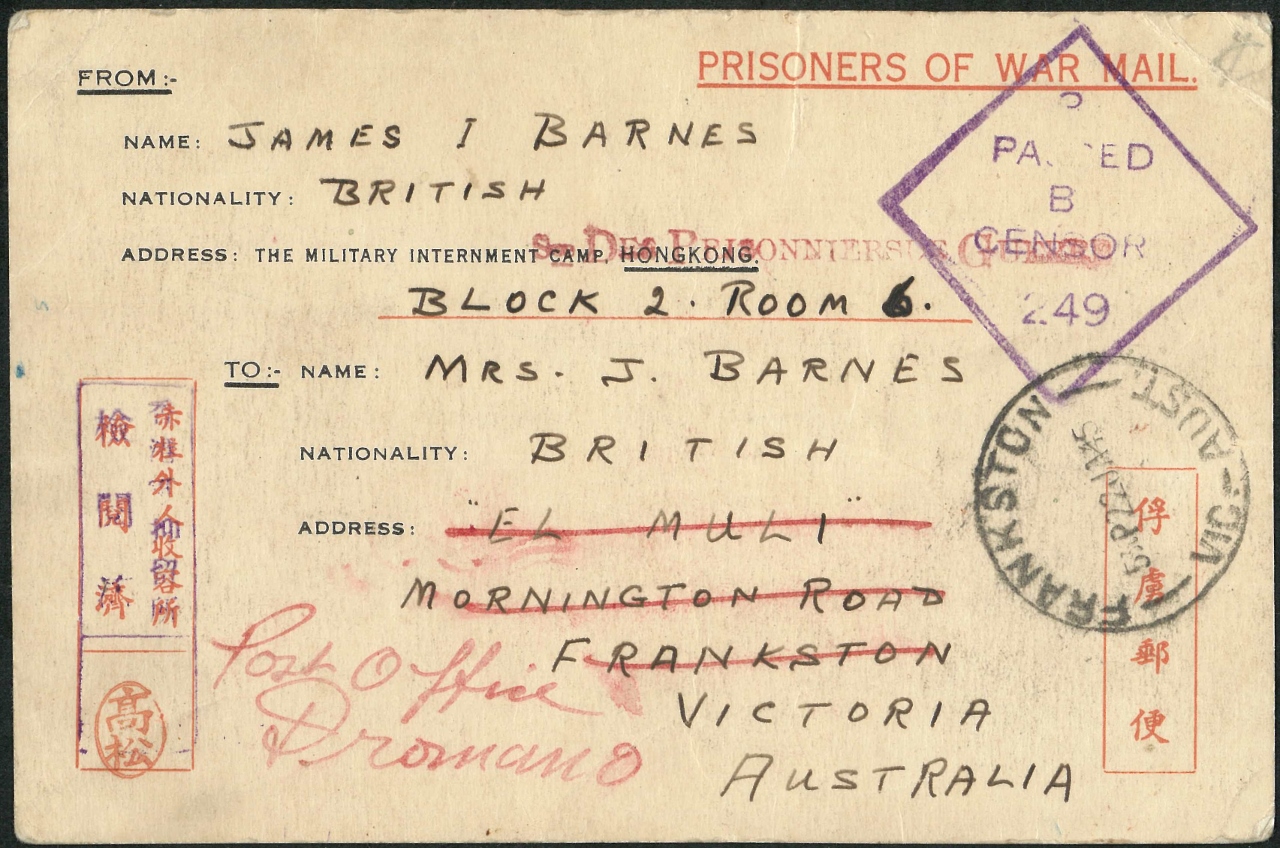 PRISONERS OF WAR MAIL.
FROM:-
NAME: JAMES I BARNES
NATIONALITY: BRITISH
ADDRESS: THE MILITARY INTERNMENT CAMP, HONGKONG.
BLOCK 2. ROOM 6.
PRISONNIERS DE
PASSED
B
CENSOR
249
TO:- NAME: MRS. J. BARNES
NATIONALITY: BRITISH
ADDRESS: "EL MULI"
MORNINGTON ROAD
FRANKSTON
VICTORIA
AUSTRALIA
Post Office
Dromana
FRANKSTON
VIC - AUST.
俘虜郵便
赤柱外人抑留所
檢閲濟
高松